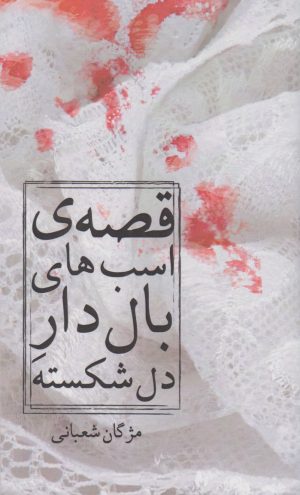 قصه‌ی
اسب های
بال دارِ
دل شکسته
مژگان شعبانی